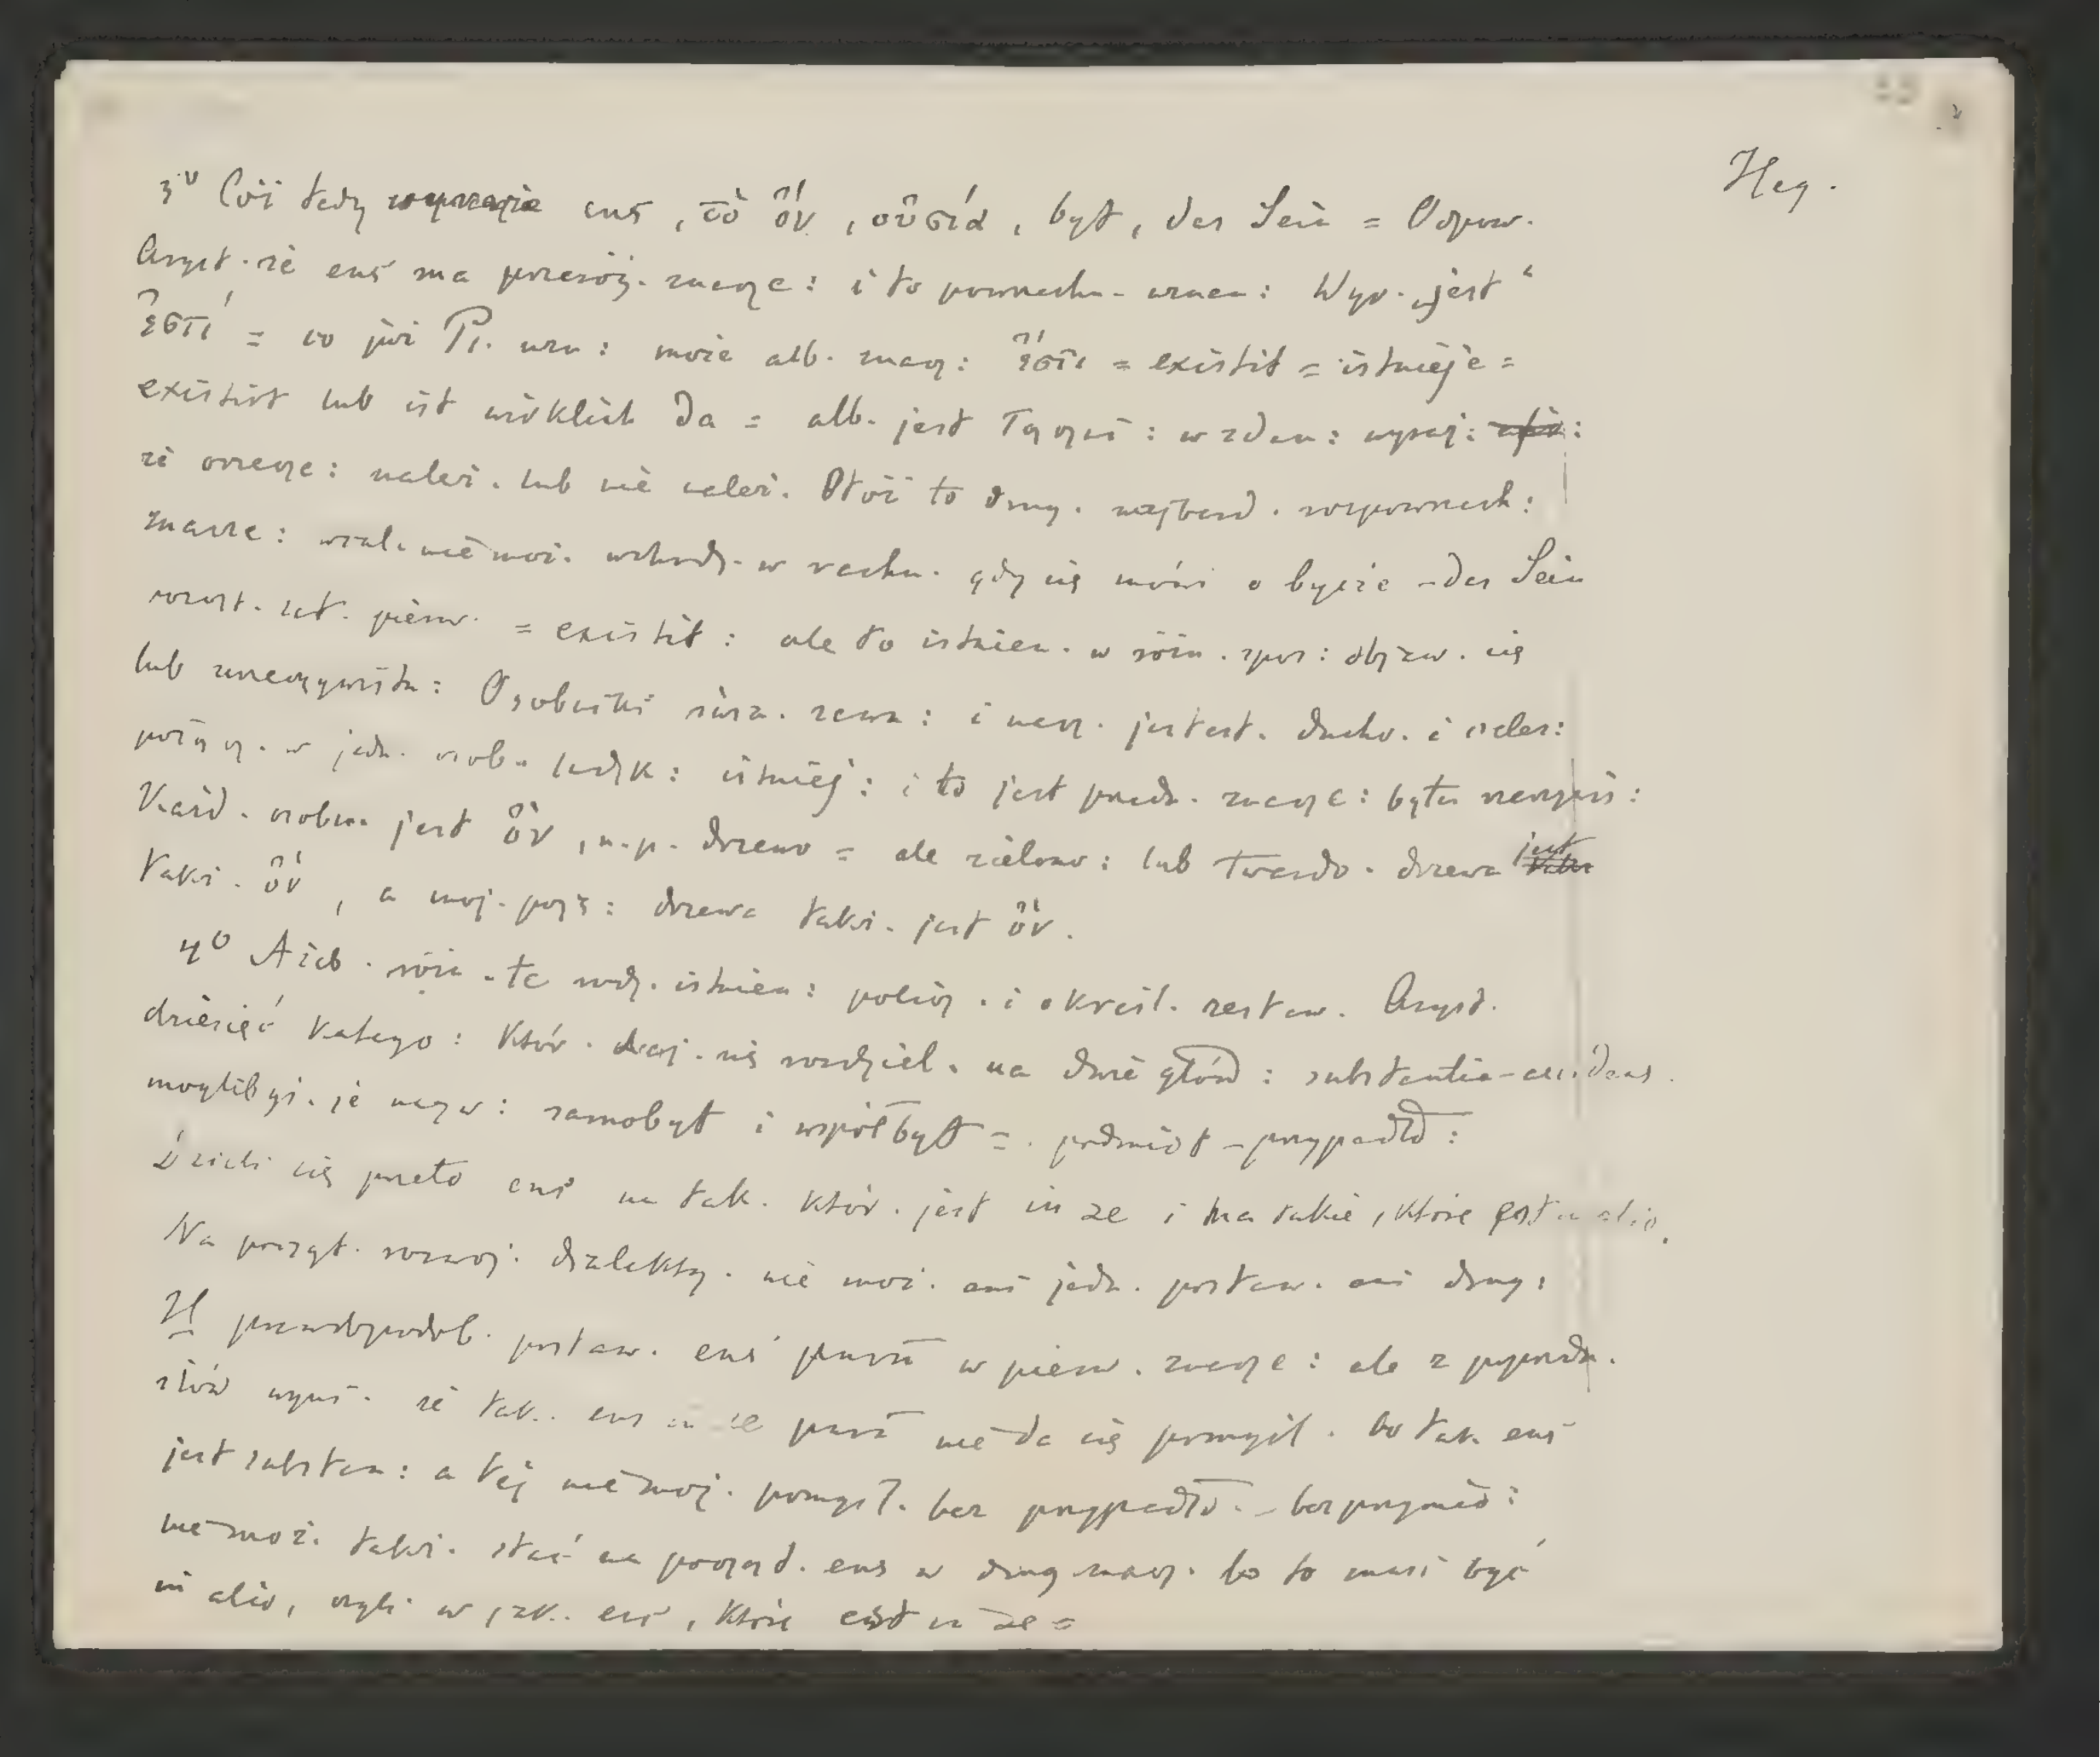 Heg.
3° Cóż tedy wyraża ens, τὸ ὄν, οὐσία, byt, das Sein = Odpow.
Aryst. że ens ma znacze: i to powszechn. uznan: Wyr. „jest“
ἐστί = co już Pl. uzn: może alb. znacz: ἔστι = existit = istnieje =
existirt lub ist wirklich da = alb. jest Łączni: w zdan: wyraż:
że orzecze: należ. lub nie należ. Otóż to drug. najbard. rozpowszech:
znacze: wcal. nie moż. wchodz. w rachu. gdy się mówi o bycie – das Sein
pozost. zat. pierw. = existit: ale to istnien. w różn. spos: objaw. się
lub urzeczywistn: Osobniki i jestest. ducho. i cieles:
połącz. w jedn. osob. ludzk: istniej: i to jest znacze: bytu
Każd. osobn. jest ὄν, n.p. drzewo = ale zielono: lub twardo. drzewa jest
takż. ὄν, a moj. poję: drzewa takż. jest ὄν.
4° Ażeb. różn. te rodz. istnien: policz. i określ. zestaw. Aryst.
dziesięć katego: któr. dają. się rozdziel. na dwie głów: substantia – accidens.
moglibyś. je nazw: samobyt i współbyt = podmiot – przypadło:
Dzieli się przeto ens na tak. któr. jest in se i na takie, które est in alio.
Na począt. rozwoj: dialekty. nie moż. ani jedn. postaw. ani drug:
H prawdopodob. postaw. ens purum w pierw. znacze: ale z poprzedn.
słów wyni. że tak. ens in se purum nie da się pomyśl. bo tak. ens
jest substan: a tej nie moż. pomyśl. bez przypadło. – bez przymio:
nie moż. takż. stać na począt. ens w drug znacz. bo to musi być
in alio, czyli w jak. ens, które est in se =